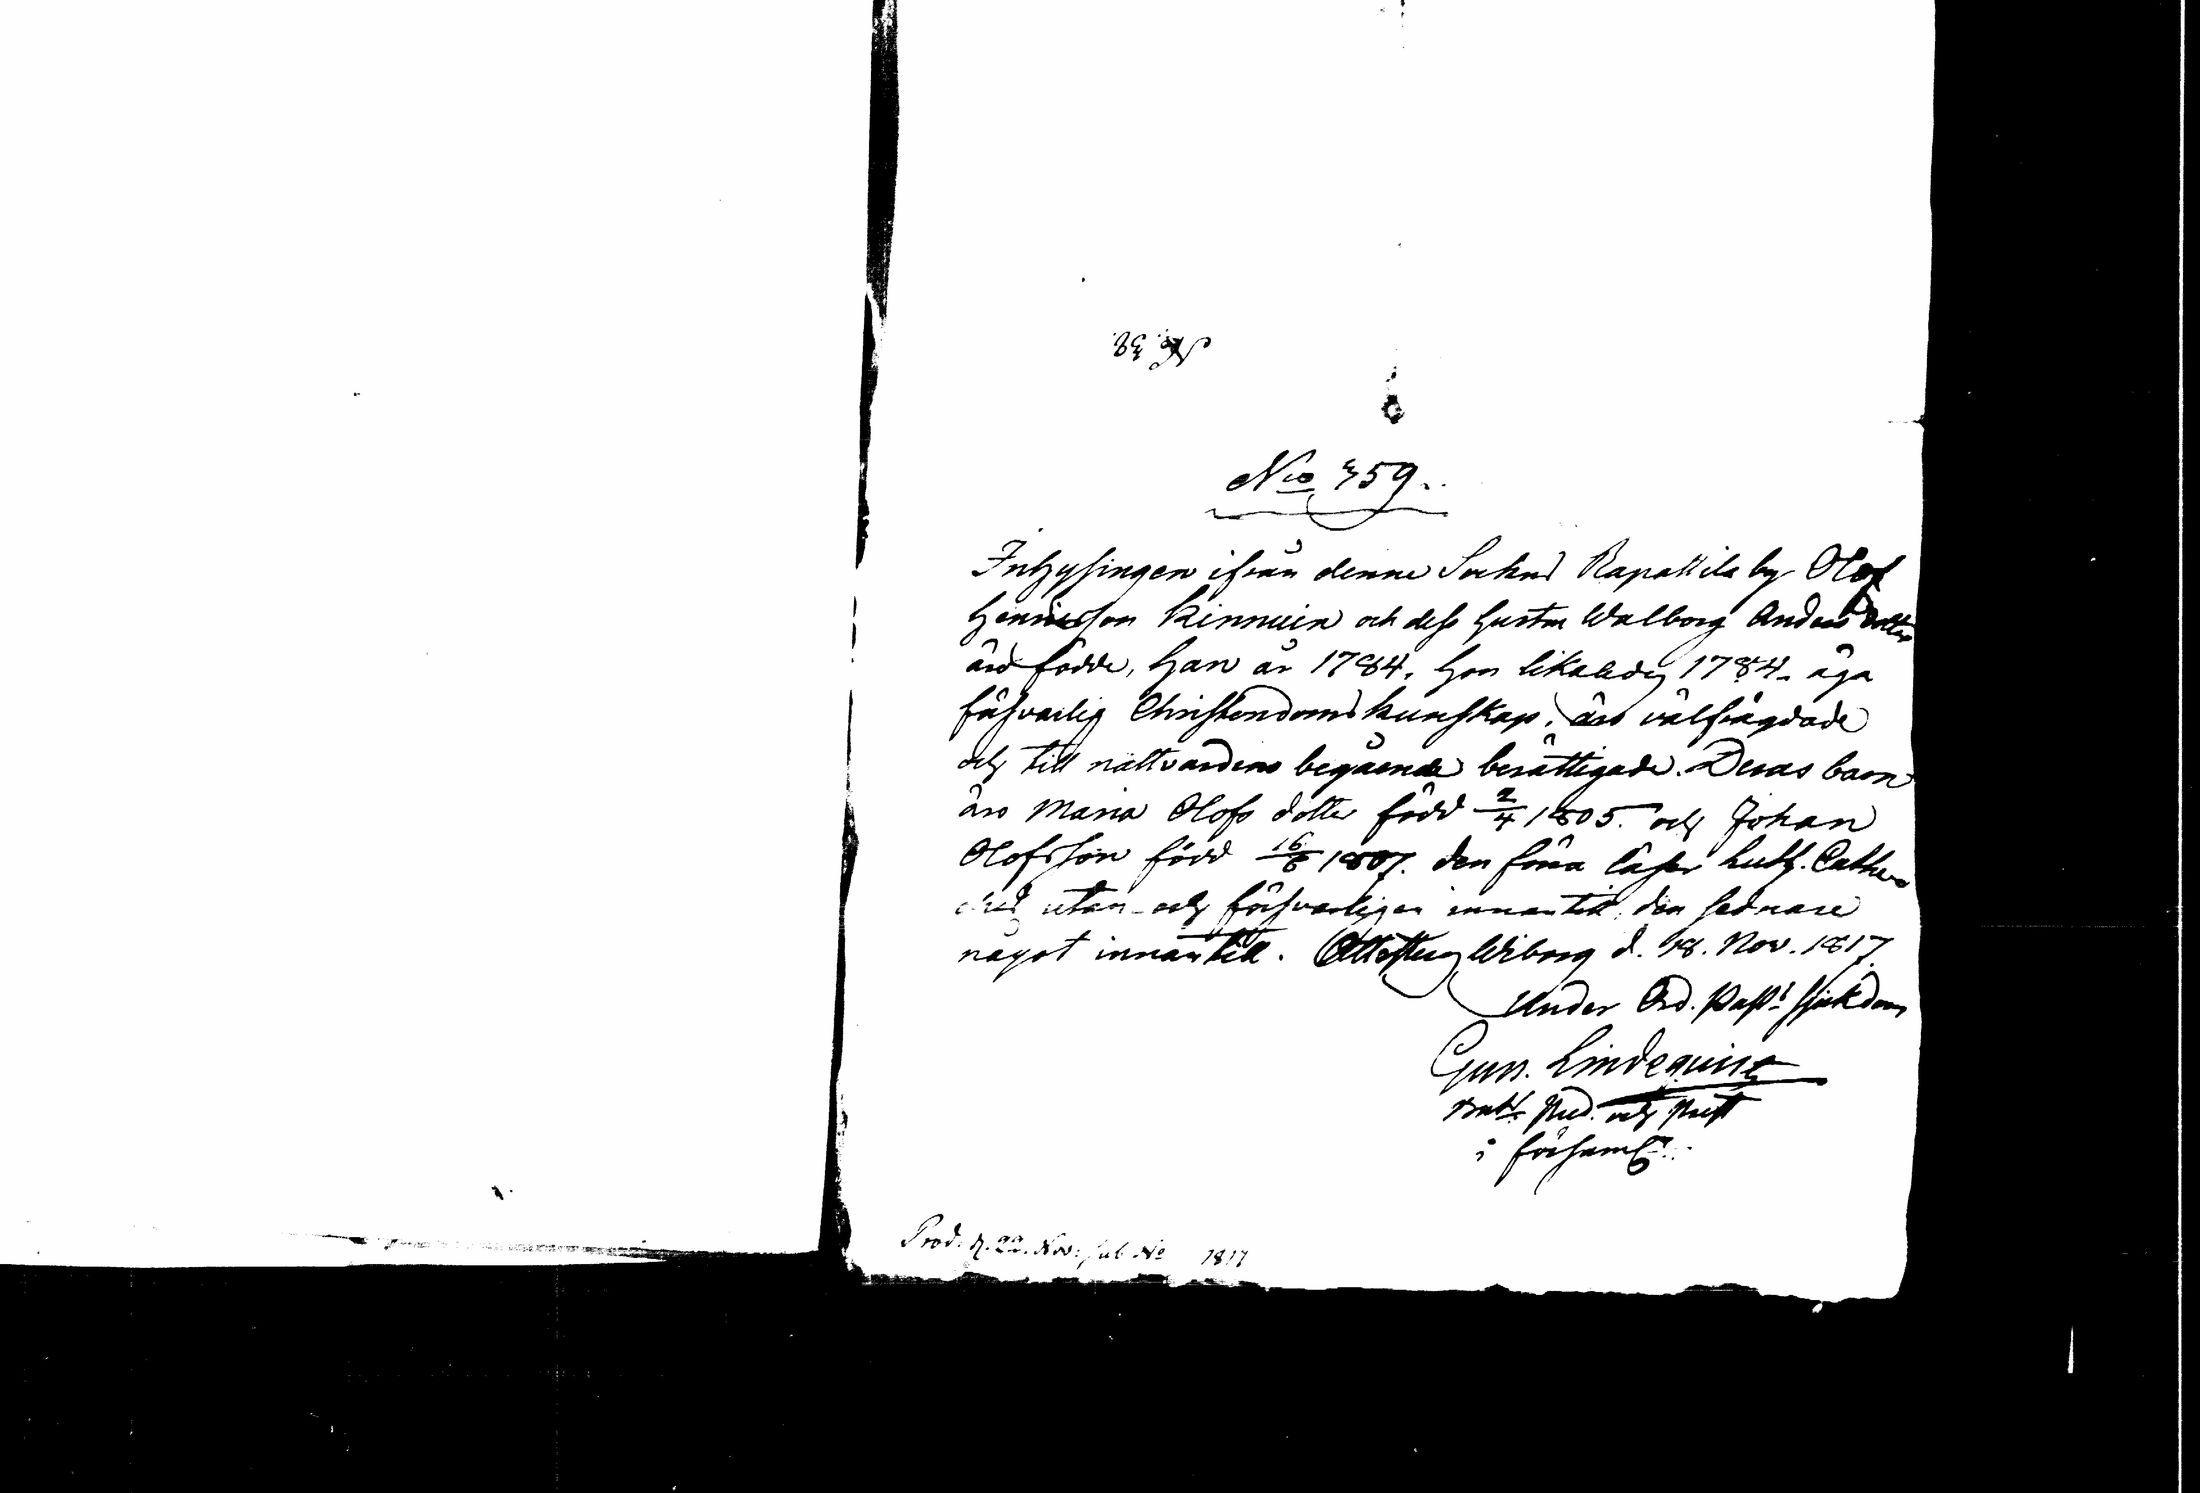 No. 38.
No 359.
Inhysingen ifrån denne Sockns Rapattila by Olof
Henricsson Kinnuin och dess hustru Walborg Anders dotter
äro födde, han år 1784, hon likaledes 1784. äga
försvarlig Christendoms kunskap, äro välfrägdade
och till nattvardens begående berättigade. Deras barn
äro Maria Olofs dotter född 2/4 1805. och Johan
Olofsson född 16/6 1807. den förra läser Luth. Cathe
ches utan och försvarligen innantill, den sednare
något innantill. Attesteras Wiborg d. 18. Nov. 1817.
Under Ord. Past: sjukdom
Gust. Lindequist
Batt: Pred. och Past
i församl.
Prod. d. 22. Nov. sub No 1817